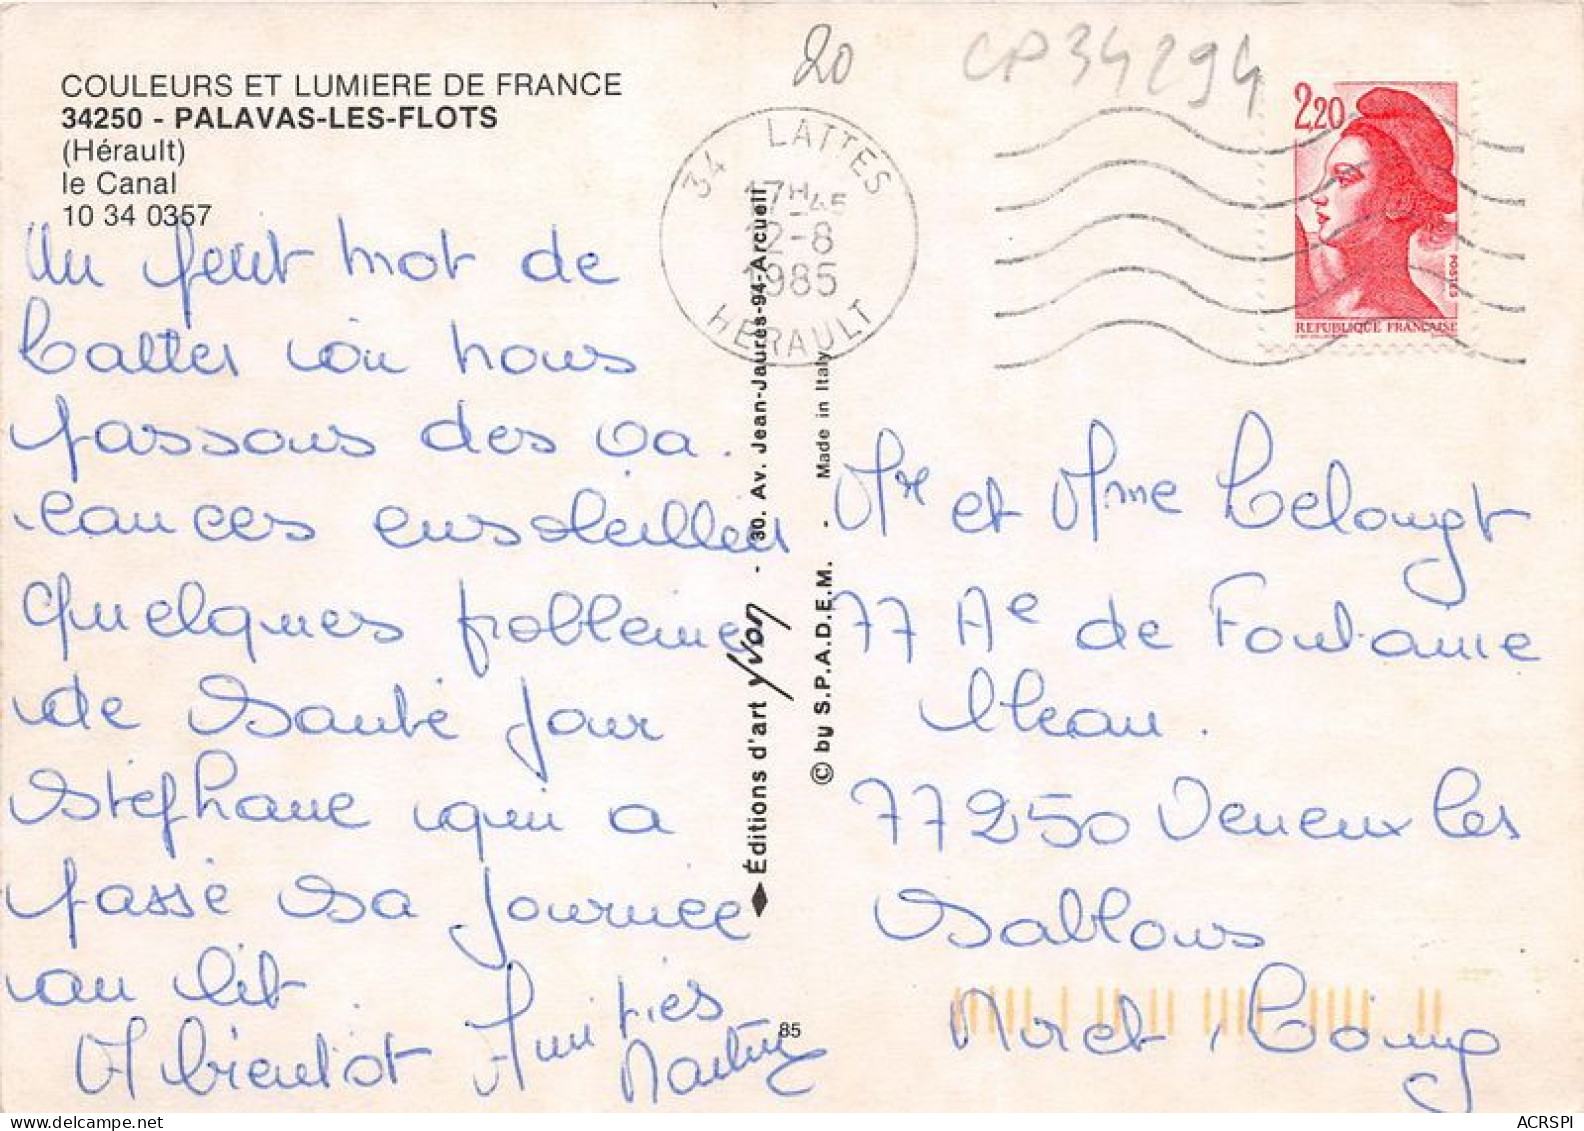 COULEURS ET LUMIERE DE FRANCE
34250 - PALAVAS-LES-FLOTS
(Hérault)
le Canal
10 34 0357
Un petit mot de
Lattes où nous
passons des va.
cances ensoleillées
Quelques problème
de Santé pour
Stéphane qui a
passé sa journée
au lit.
A bientôt Amitiés
Martine
20
CP34294
34 LATTES
17H45
12-8
1985
HERAULT
2,20
POSTES
REPUBLIQUE FRANÇAISE
Éditions d'art Yvon - 30. Av. Jean-Jaurès-94-Arcueil
© by S.P.A.D.E.M. - Made in Italy
85
Mr et Mme
77 Ae de Fontaine
bleau.
77250 Veneux les
Sablons
Moret s/ Loing
ACRSPI